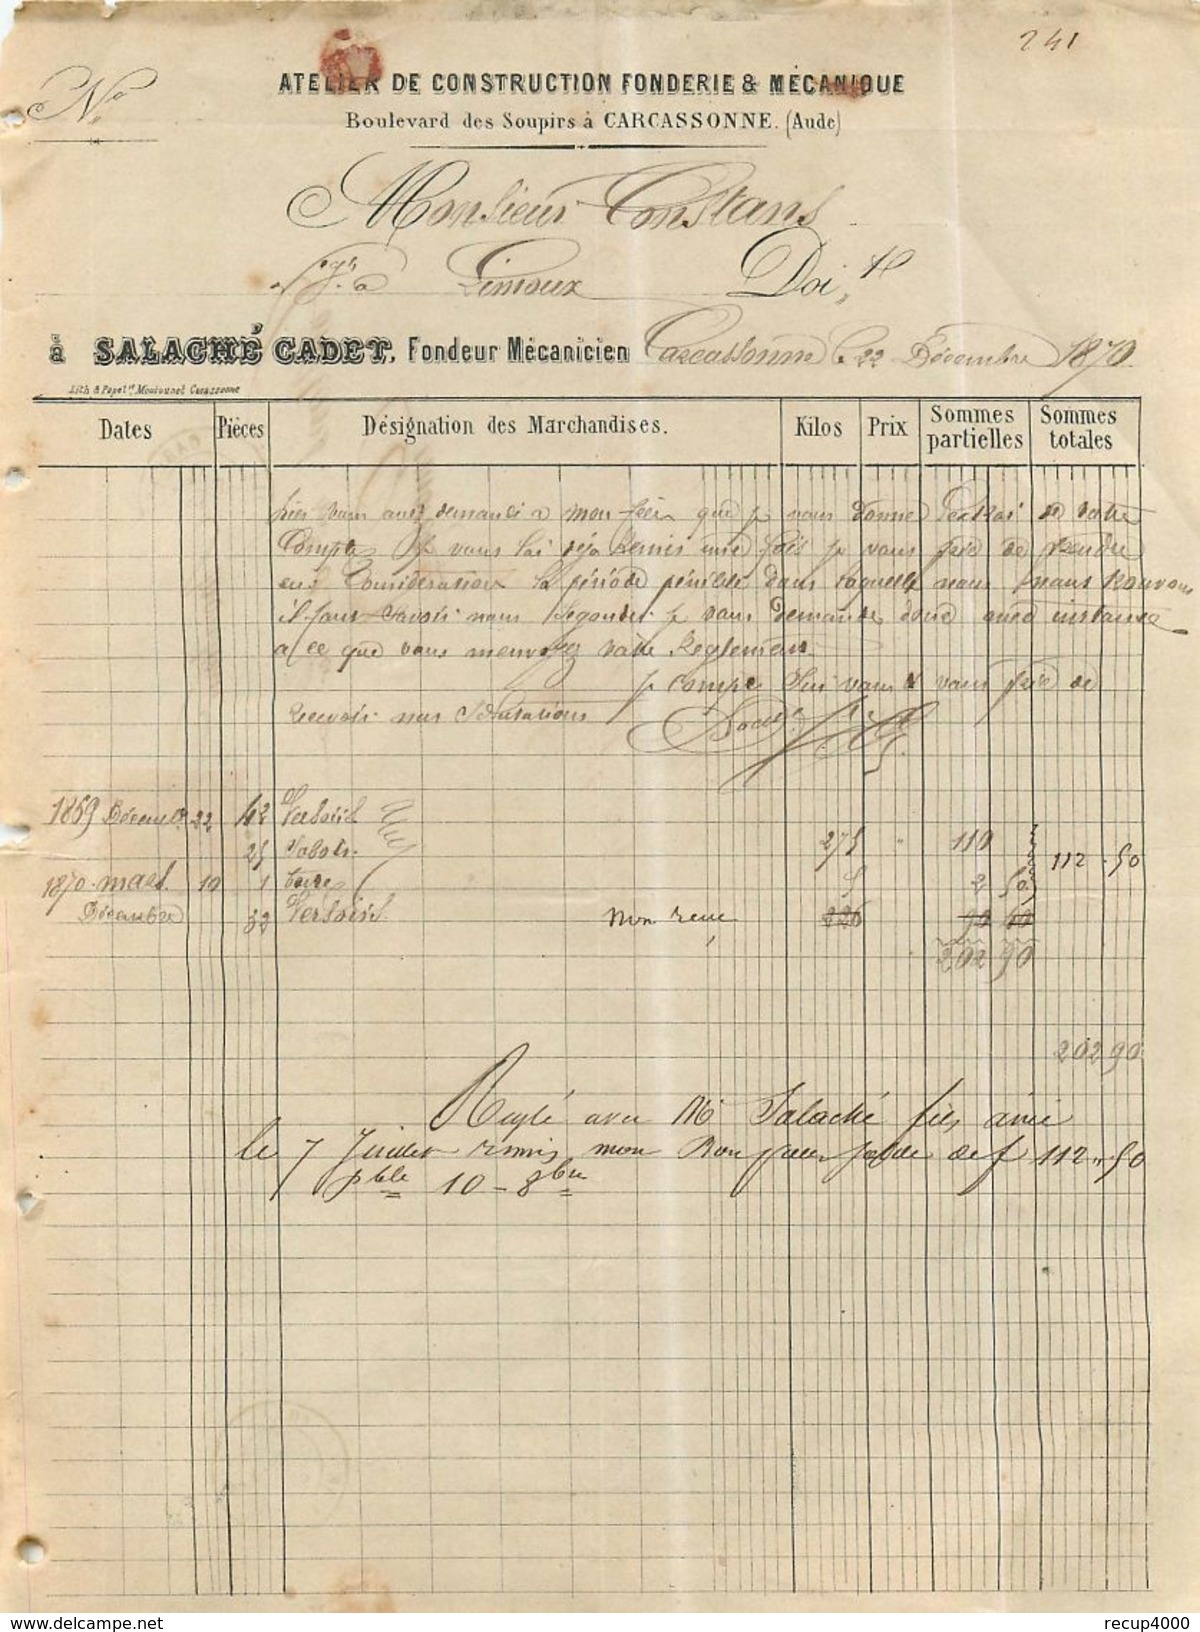 241
N°
ATELIER DE CONSTRUCTION FONDERIE & MÉCANIQUE
Boulevard des Soupirs à CARCASSONNE. (Aude)
Monsieur Constans
à Limoux Doit
à SALACHÉ CADET, Fondeur Mécanicien Carcassonne le 22 Décembre 1870
Lith & Papet. Moutounet Carcassonne
Dates Pièces Désignation des Marchandises. Kilos Prix Sommes partielles Sommes totales
vous avez demandé a mon frère que je vous donne de votre
Compte je vous l'ai déja remis une fois je vous prie de prendre
en Considération la période pénible dans laquelle nous nous trouvons
il faut savoir nous je vous demande donc avec instance
a ce que vous m'envoyez votre Reglement
je compte sur vous & vous prie de
recevoir nos Salutations
1869 Décembre 22 42 Versoirs
25 Sabots 275 " 110
1870 mars 10 1 5 2 50 112.50
Décembre 32 Versoirs non reçu 226 90 40
202 90
202 90
Reglé avec Mr Salaché fils ainé
le 7 Juillet remis mon Bon pour solde de f 112.50
pble 10 - 8bre
recup4000